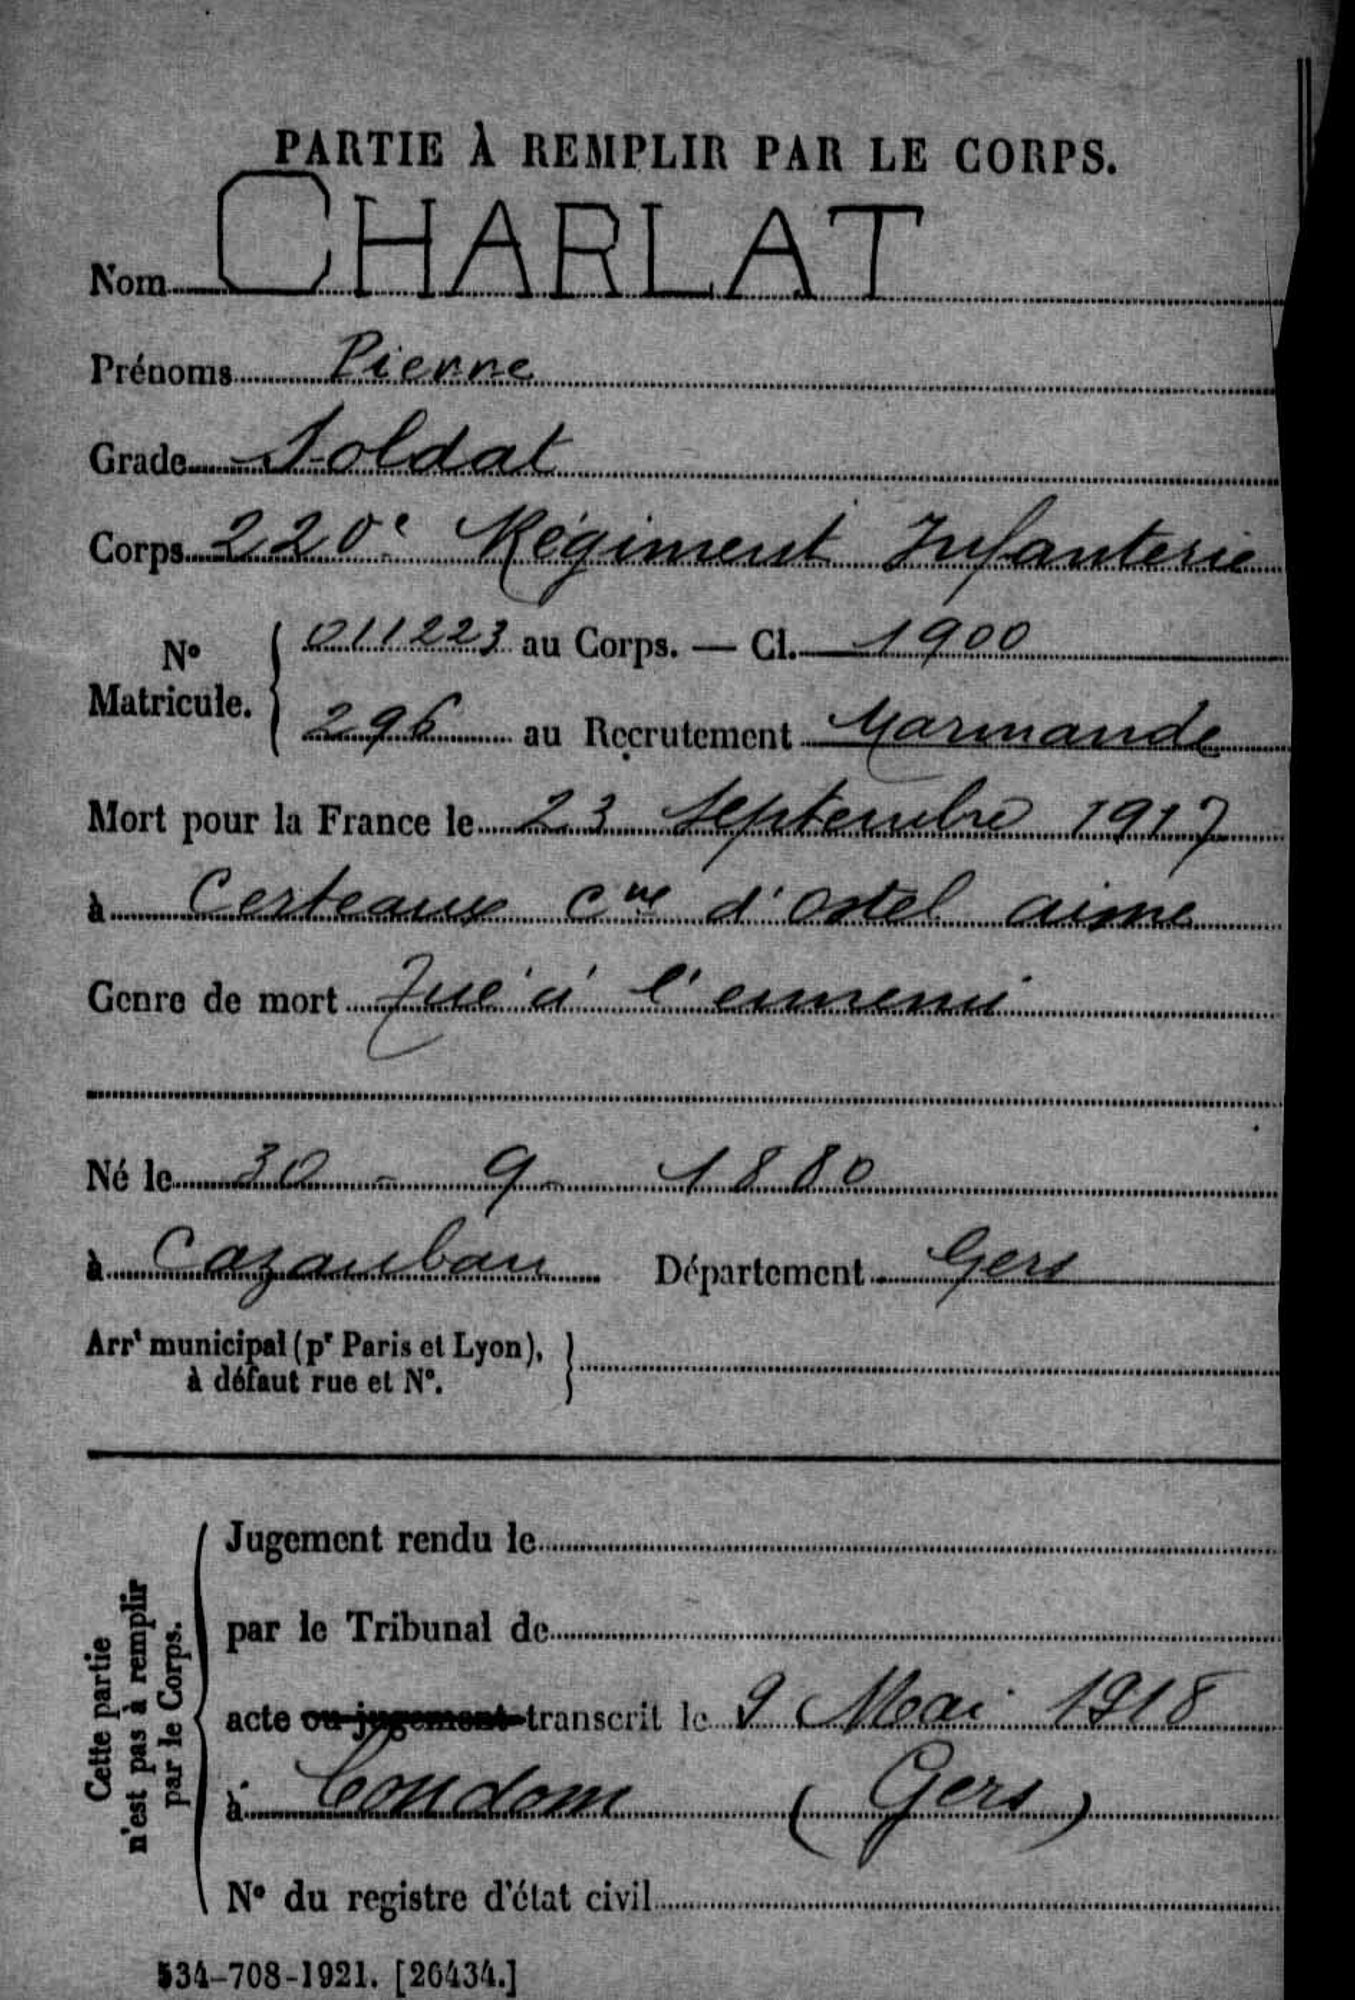 PARTIE À REMPLIR PAR LE CORPS.
Nom CHARLAT
Prénoms Pierre
Grade Soldat
Corps 220e Régiment Infanterie
No Matricule. { 011223 au Corps. — Cl. 1900
296 au Recrutement Marmande
Mort pour la France le 23 Septembre 1917
à Certeaux Cne d'Ostel aisne
Genre de mort Tué à l'ennemi
Né le 30 - 9 - 1880
à Cazaubon Département Gers
Arrt municipal (pr Paris et Lyon), }
à défaut rue et No.
Cette partie
n'est pas à remplir
par le Corps.
Jugement rendu le
par le Tribunal de
acte ou jugement transcrit le 9 Mai 1918
à Condom (Gers)
No du registre d'état civil
534-708-1921. [26434.]